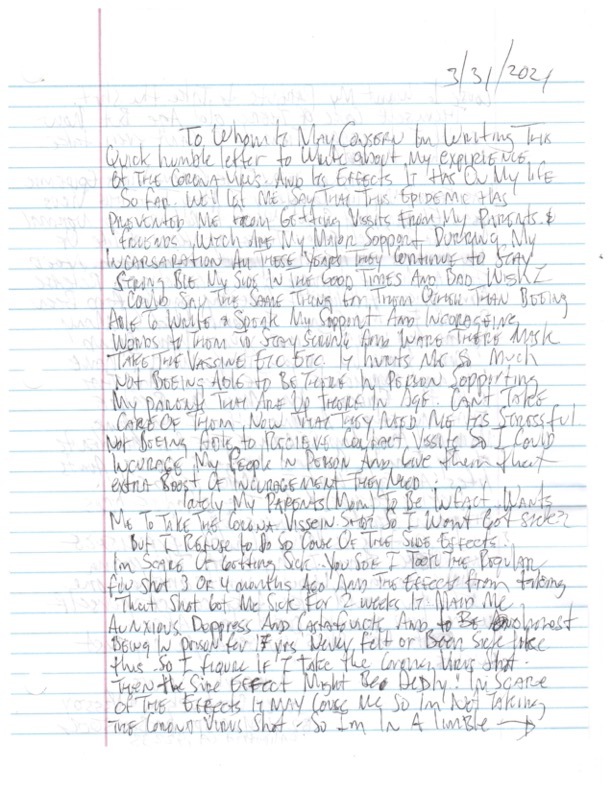 3/31/2021
To Whom It May Consern Im Writing This
Quick humble letter to Write about My experience
Of The Corona Virus. And Its Effects It Has On My Life
So far. Well let Me Say That This Epidemic Has
Prevented Me from Getting Vissits From My Parents &
friends, Witch Are My Major Support Durring My
Incarsaration All These Years They Continue to Stay
Strong Bie My Side In The Good Times And Bad Wish I
Could Say The Same Thing for Them Other Than Being
Able To Write & Speak My Support And Incorageing
Words to Them to Stay Strong And Ware There Mask
Take The Vassine Etc Etc. It hurts Me So Much
Not Beeing Able to Be There In Person Supporting
My parents That Are Up There In Age. Cant Take
Care Of Them, Now That They Need Me Its Stressful
Not Beeing Able to Recieve Contact Vissits So I Could
Incurage My People In Person And Give them that
extra Boost Of Incuragement They Need.
lately My Parents (Mom) To Be Exact Wants
Me To Take The Corona Vissein Shot So I Wont Get Sick?
But I Refuse to Do So Cause Of The Side Effects.
Im Scare Of Getting Sick. You See I Took The Regular
flu Shot 3 Or 4 months Ago And The Effects from taking
That Shot Got Me Sick For 2 weeks It Made Me
Aunxious, Deppress And And to Be honest
Being In prison for 17 yrs Never felt or Been Sick like
this. So I figure If I take the Corona Virus Shot.
Then the Side Effect Might Bee Dedly! Im Scare
Of The Effects It May Cause Me So Im Not Taking
The Corona Virus Shot. So Im In A Limble →